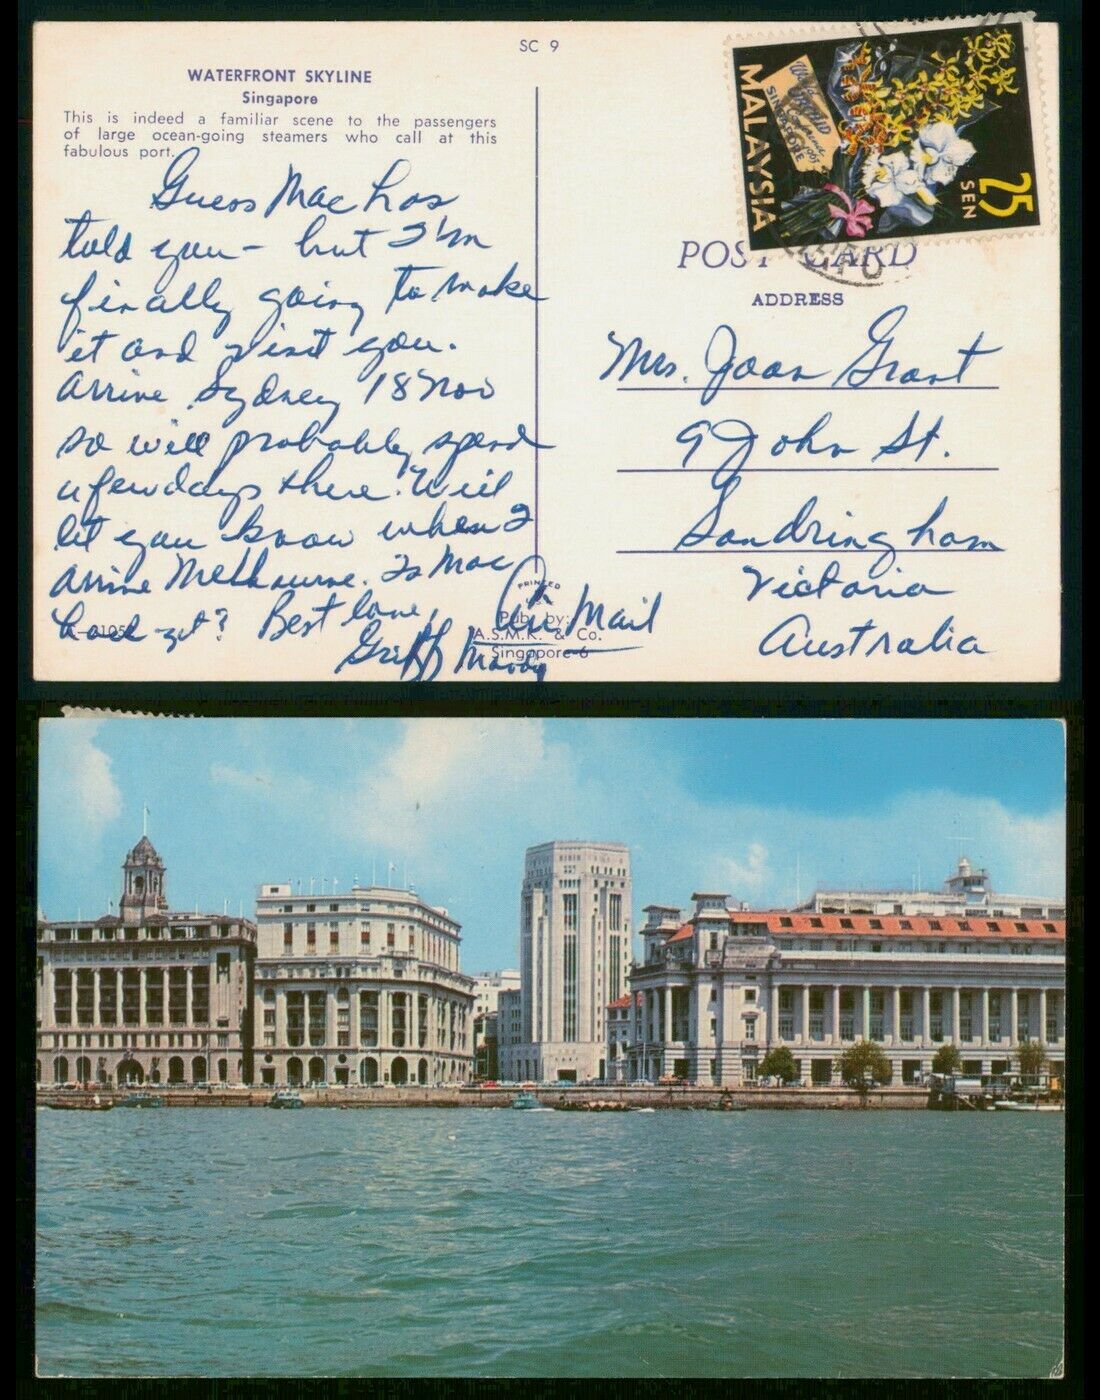 SC 9
WATERFRONT SKYLINE
Singapore
This is indeed a familiar scene to the passengers
of large ocean-going steamers who call at this
fabulous port.
Guess Mac has
told you - but I'm
finally going to make
it and visit you.
Arrive Sydney 18 Nov
so will probably spend
a few days there. Will
let you know when I
arrive Melbourne. Is Mac
back yet? Best love,
Griff
Air Mail
PRINTED
Pub. by:
A.S.M.K. & Co.
Singapore-6
MALAYSIA
25
SEN
WORLD ORCHID
SINGAPORE
POST CARD
ADDRESS
Mrs. Joan Grant
9 John St.
Sandringham
Victoria
Australia